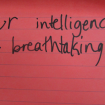 ur intelligenc
breathtaking